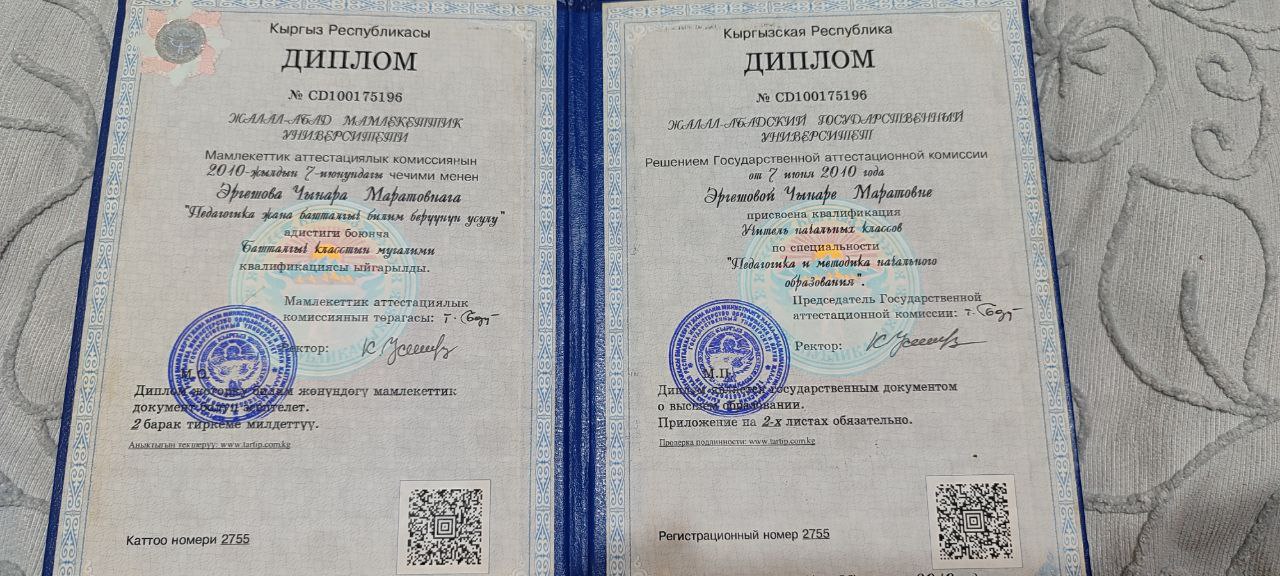 Кыргыз Республикасы
ДИПЛОМ
№ CD100175196
ЖАЛАЛ-АБАД МАМЛЕКЕТТИК
УНИВЕРСИТЕТИ
Мамлекеттик аттестациялык комиссиянын
2010-жылдын 7-июнундагы чечими менен
Эргешова Чынара Маратовнага
"Педагогика жана башталгыч билим берүүнүн усулу"
адистиги боюнча
Башталгыч класстын мугалими
квалификациясы ыйгарылды.
Мамлекеттик аттестациялык
комиссиянын төрагасы:
Ректор:
М.О.
Диплом жогорку билим жөнүндөгү мамлекеттик
документ болуп эсептелет.
2 барак тиркеме милдеттүү.
Аныктыгын текшерүү: www.tartip.com.kg
Каттоо номери 2755
Кыргызская Республика
ДИПЛОМ
№ CD100175196
ЖАЛАЛ-АБАДСКИЙ ГОСУДАРСТВЕННЫЙ
УНИВЕРСИТЕТ
Решением Государственной аттестационной комиссии
от 7 июня 2010 года
Эргешовой Чынаре Маратовне
присвоена квалификация
Учитель начальных классов
по специальности
"Педагогика и методика начального
образования".
Председатель Государственной
аттестационной комиссии:
Ректор:
М.П.
Диплом является государственным документом
о высшем образовании.
Приложение на 2-х листах обязательно.
Проверка подлинности: www.tartip.com.kg
Регистрационный номер 2755